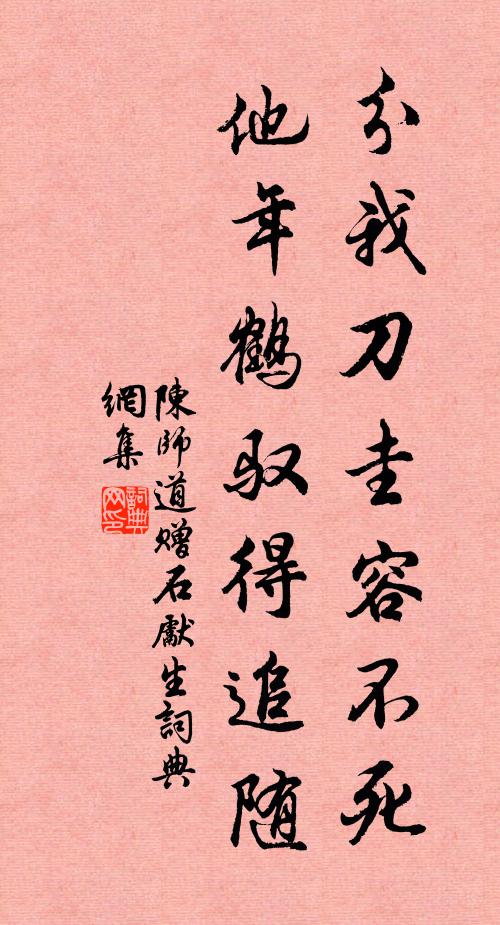 分我刀圭容不死
他年鶴馭得追随
陳師道贈石獻生詞典
網集
詞典
网印